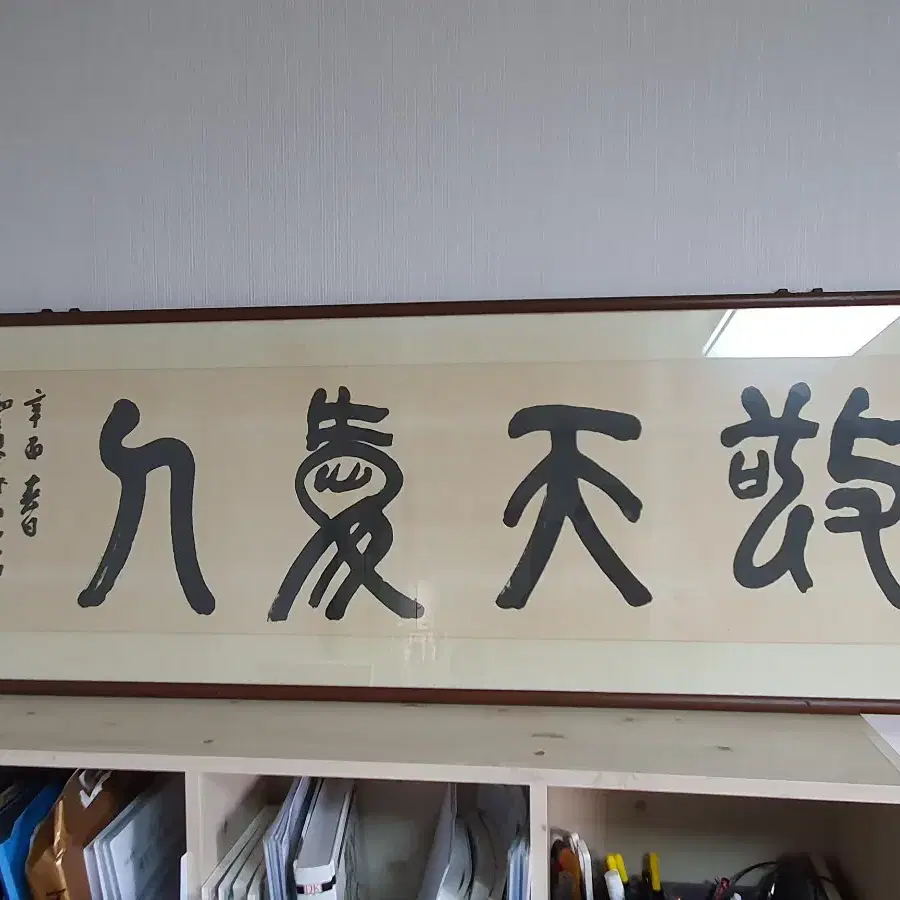 敬天愛人
辛酉春日